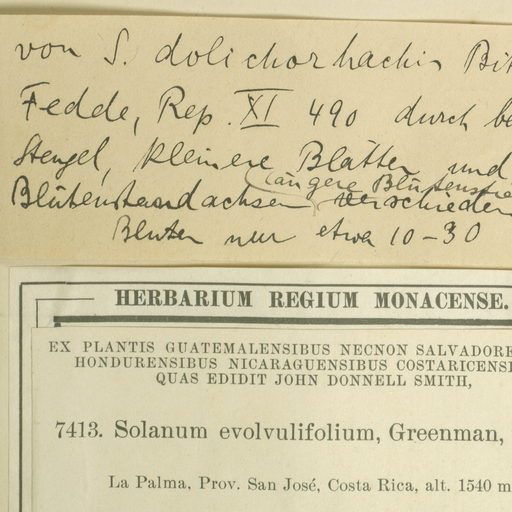 von S. dolichorhachis Bit
Fedde, Rep. XI 490 durch be
Stengel, kleinere Blätter und
(längere Blütenstie
Blütenstandachsen verschieden
Blüten nur etwa 10-30
HERBARIUM REGIUM MONACENSE.
EX PLANTIS GUATEMALENSIBUS NECNON SALVADORE
HONDURENSIBUS NICARAGUENSIBUS COSTARICENSI
QUAS EDIDIT JOHN DONNELL SMITH,
7413. Solanum evolvulifolium, Greenman,
La Palma, Prov. San José, Costa Rica, alt. 1540 m